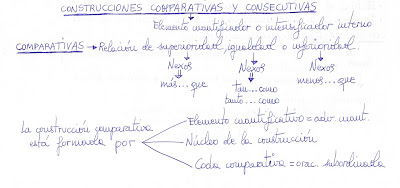 CONSTRUCCIONES COMPARATIVAS Y CONSECUTIVAS
Elemento cuantificador o intensificador interno
COMPARATIVAS → Relación de superioridad, igualdad o inferioridad.
Nexos Nexos Nexos
más...que tan...como menos...que
tanto...como
La construcción comparativa
está formada por
Elemento cuantificativo = adv. cuant.
Núcleo de la construcción
Coda comparativa = orac. subordinada